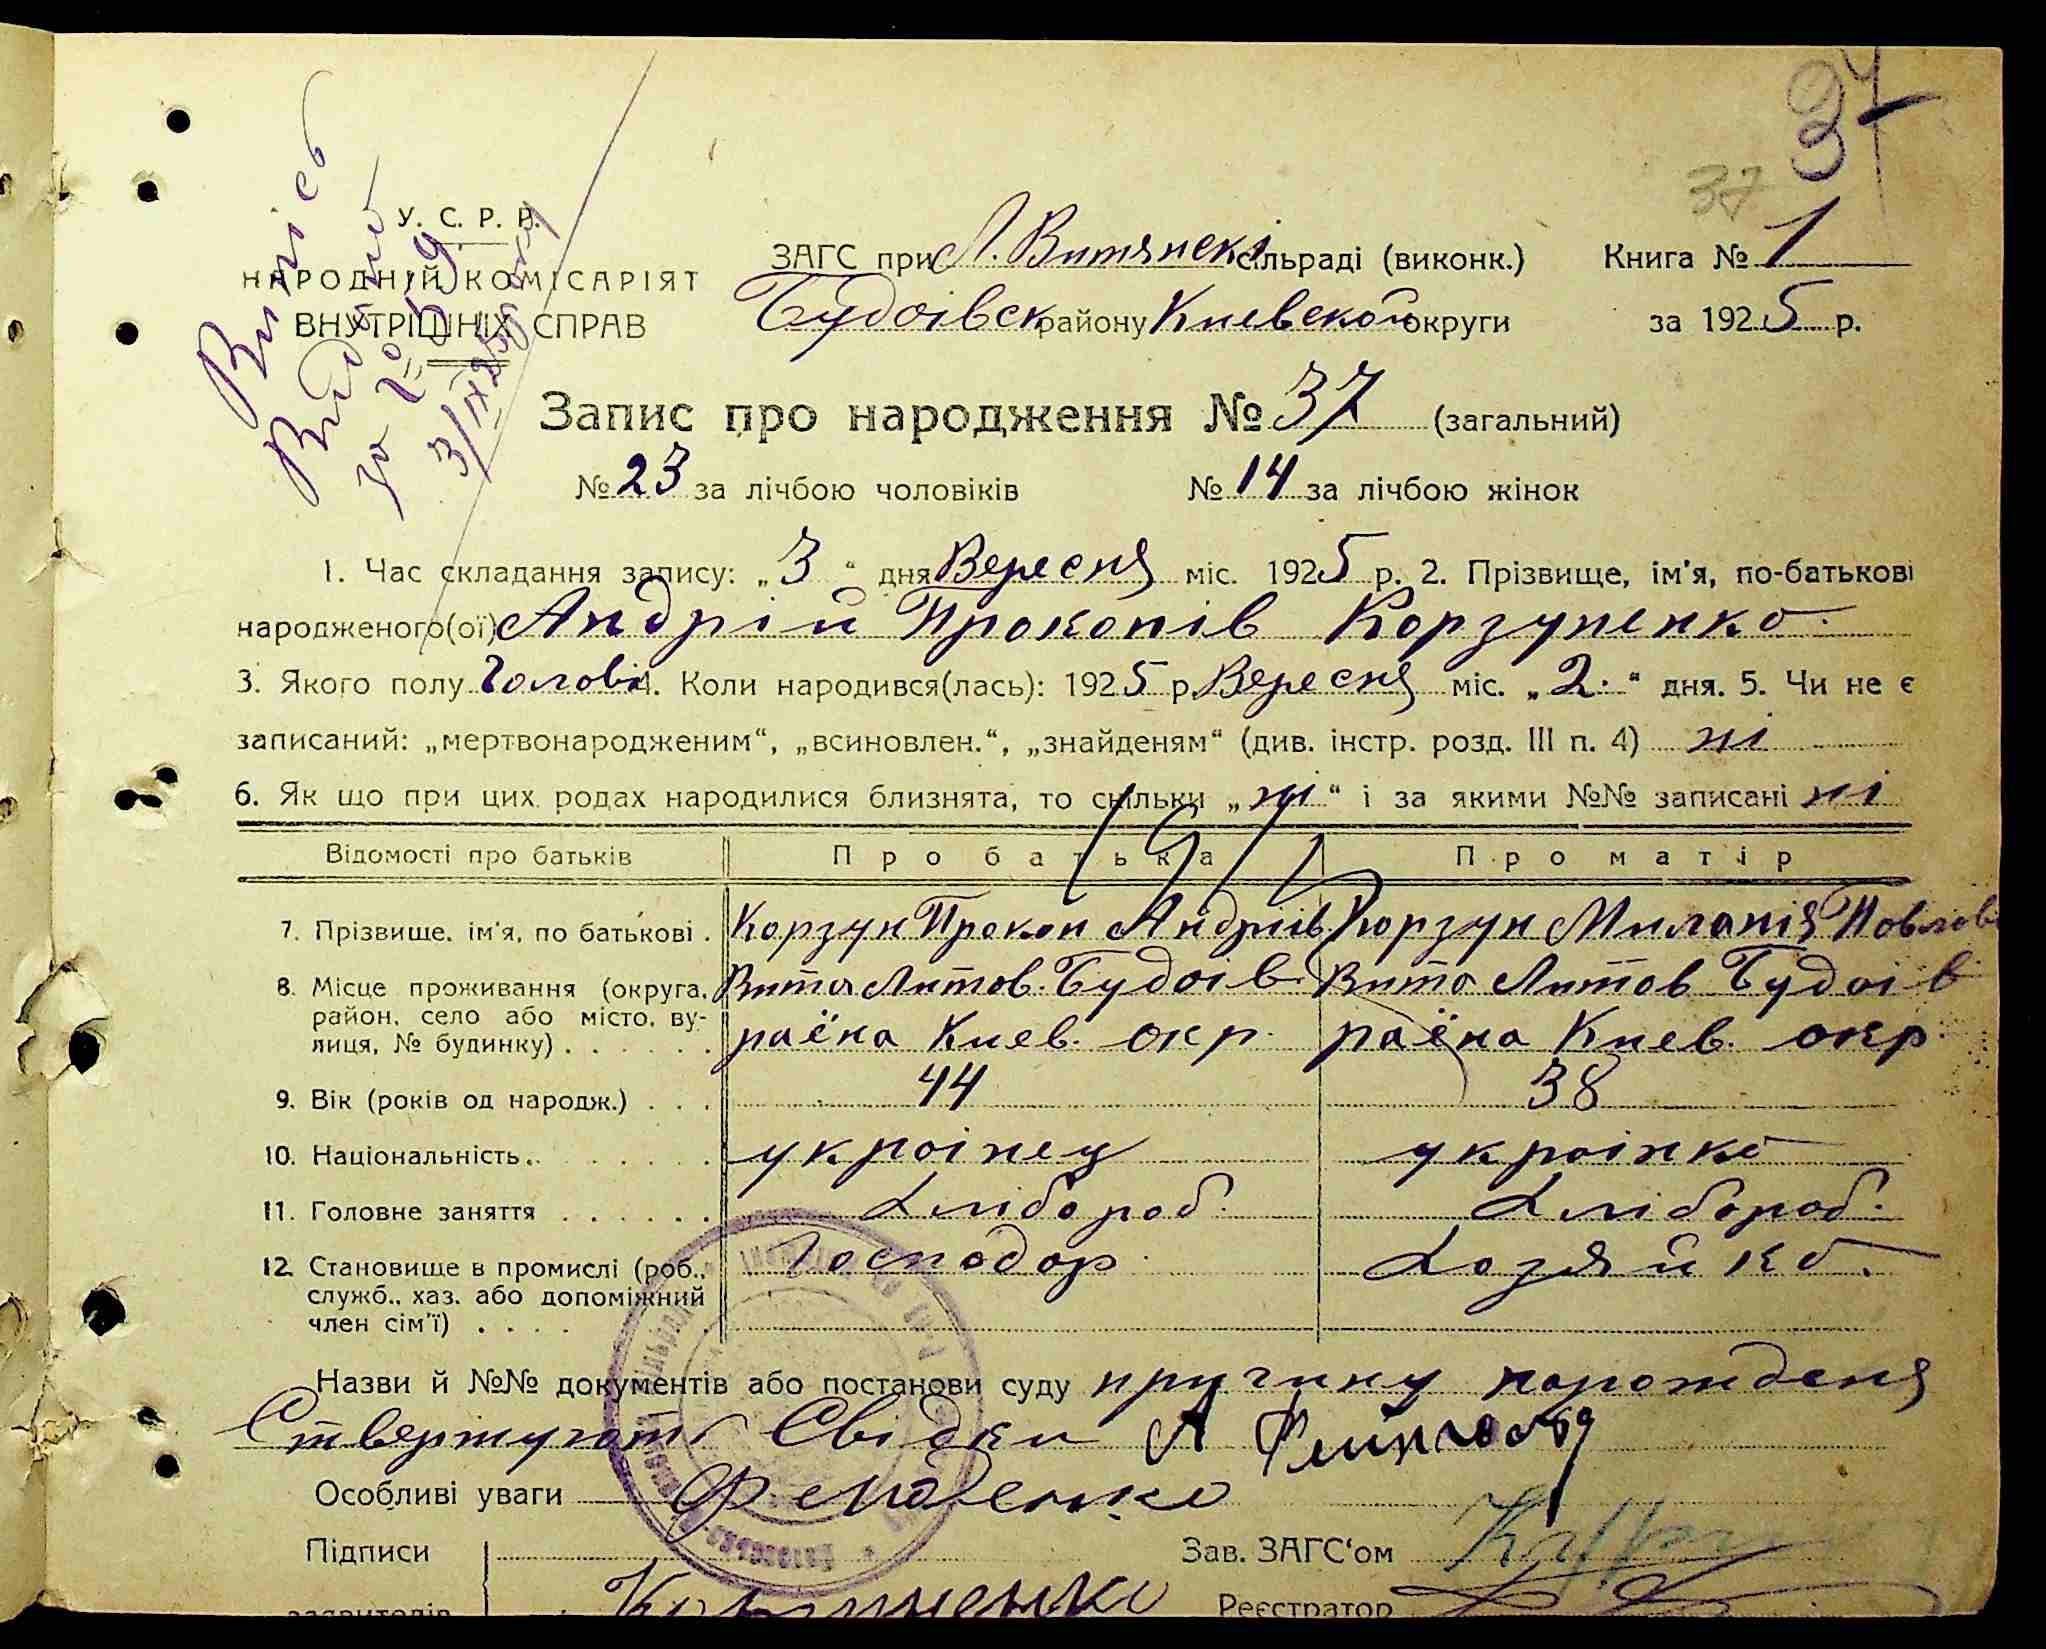 37
37
Виніс
Виданий
за № 59
3/IX 25 року
У. С. Р. Р.
НАРОДНІЙ КОМІСАРІЯТ
ВНУТРІШНІХ СПРАВ
ЗАГС при Л. Витянскі сільраді (виконк.) Книга № 1
Будоівск району Киевской округи за 1925 р.
Запис про народження № 37 (загальний)
№ 23 за лічбою чоловіків № 14 за лічбою жінок
1. Час складання запису: „3“ дня Вересня міс. 1925 р. 2. Прізвище, ім'я, по-батькові
народженого(ої) Андрій Прокопів Корзуненко.
3. Якого полу Чолові 4. Коли народився(лась): 1925 р. Вересня міс. „2.“ дня. 5. Чи не є
записаний: „мертвонародженим“, „всиновлен.“, „знайденям“ (див. інстр. розд. III п. 4) ні
6. Як що при цих родах народилися близнята, то скільки „ні“ і за якими №№ записані ні
Відомості про батьків Про батька Про матір
7. Прізвище, ім'я, по батькові . Корзун Прокоп Андріів Корзун Миланія Повлов
8. Місце проживання (округа, Вита Литов. Будоів Вита Литов Будоів
район, село або місто, ву-
лиця, № будинку) . . . . . . раёна Киев. окр. раёна Киев. окр.
9. Вік (років од народж.) . . . 44 38
10. Національність. . . . . . . украінец украінка
11. Головне заняття . . . . . . Хлібороб. Хлібороб.
12. Становище в промислі (роб., Господар Хозяйка.
служб., хаз. або допоміжний
член сім'ї) . . . .
Назви й №№ документів або постанови суду причину народженя
Ствержують Свідки А
Особливі уваги
Підписи Зав. ЗАГС'ом
заявителів Корзуненко Реєстратор